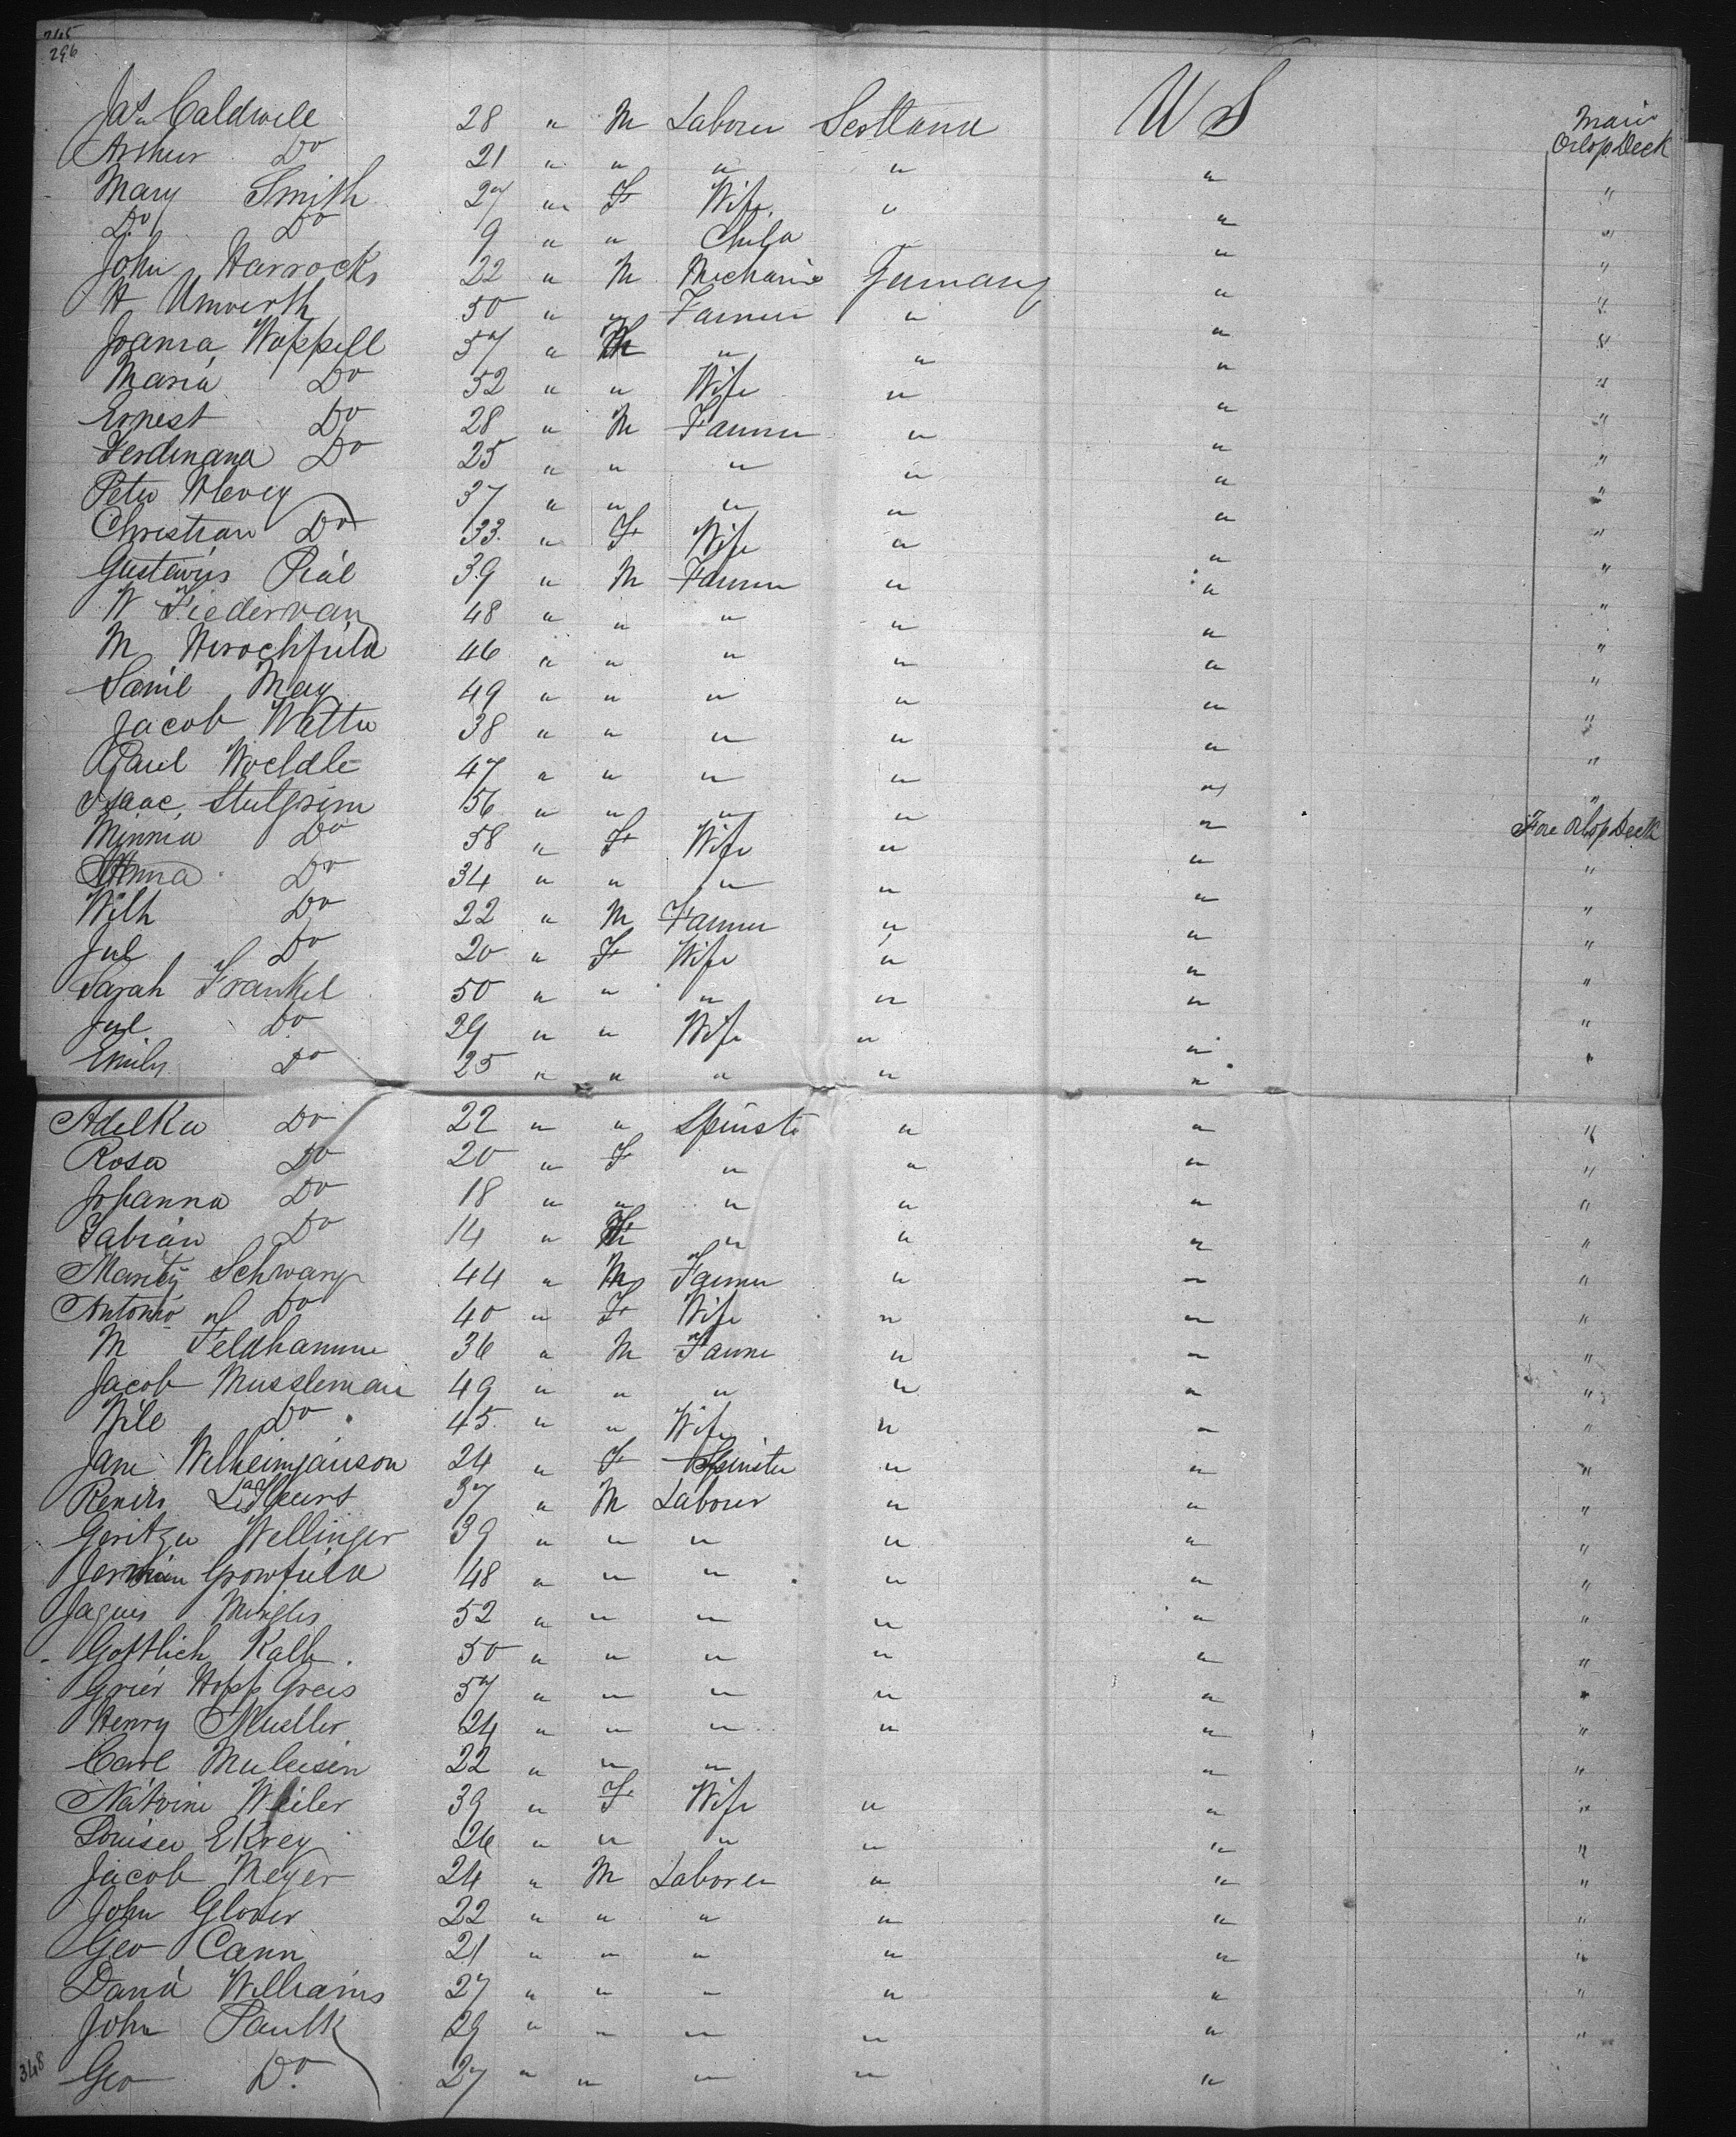 245
296
Jas Caldwell 28 " M Laborer Scotland U S Main Orlop Deck
Arthur Do 21 " " " " " "
Mary Smith 27 " F Wife " " "
Do Do 9 " " Child " " "
John Harrocks 22 " M Mechanic Germany " "
H Umverth 50 " " Farmer " " "
Joanna Woppell 57 " M " " " "
Maria Do 52 " " Wife " " "
Ernest Do 28 " M Farmer " " "
Ferdinand Do 25 " " " " " "
Peter 37 " " " " " "
Christian Do 33 " F Wife " " "
Gustavus 39 " M Farmer " " "
W Fiedervan 48 " " " " " "
M Hirochfield 46 " " " " " "
Saml May 49 " " " " " "
Jacob Watter 38 " " " " " "
Paul Woeldle 47 " " " " " "
Isaac Stulgrim 56 " " " " " Fore Orlop Deck
Minnia Do 58 " F Wife " " "
Anna Do 34 " " " " " "
Wilh Do 22 " M Farmer " " "
Jul Do 20 " F Wife " " "
Sarah Frankel 50 " " " " " "
Jul Do 29 " " Wife " " "
Emily Do 25 " " " " " "
Adelka Do 22 " " Spinst " " "
Rosa Do 20 " F " " " "
Johanna Do 18 " " " " " "
Fabian Do 14 " M " " " "
Maritz Schwarz 44 " M Farmer " " "
Antonio Do 40 " F Wife " " "
M Feldhamme 36 " M Farmer " " "
Jacob Mussleman 49 " " " " " "
Wile Do 45 " " Wife " " "
Jane Wilheimjanson 24 " F Spinster " " "
37 " M Laborer " " "
Geritzu Wellinger 39 " " " " " "
Growfield 48 " " " " " "
Jaques Mingles 52 " " " " " "
Gottlieb Kalb 50 " " " " " "
Grier Hopp Greis 57 " " " " " "
Henry Mueller 24 " " " " " "
Carl Muleisen 22 " " " " "
Natvine Weiler 39 " F Wife " " "
Louisa Ekrey 26 " " " " " "
Jacob Meyer 24 " M Laborer " " "
John Glover 22 " " " " " "
Geo Cann 21 " " " " " "
David Williams 27 " " " " " "
John Paulk 29 " " " " " "
348 Geo Do 27 " " " " "